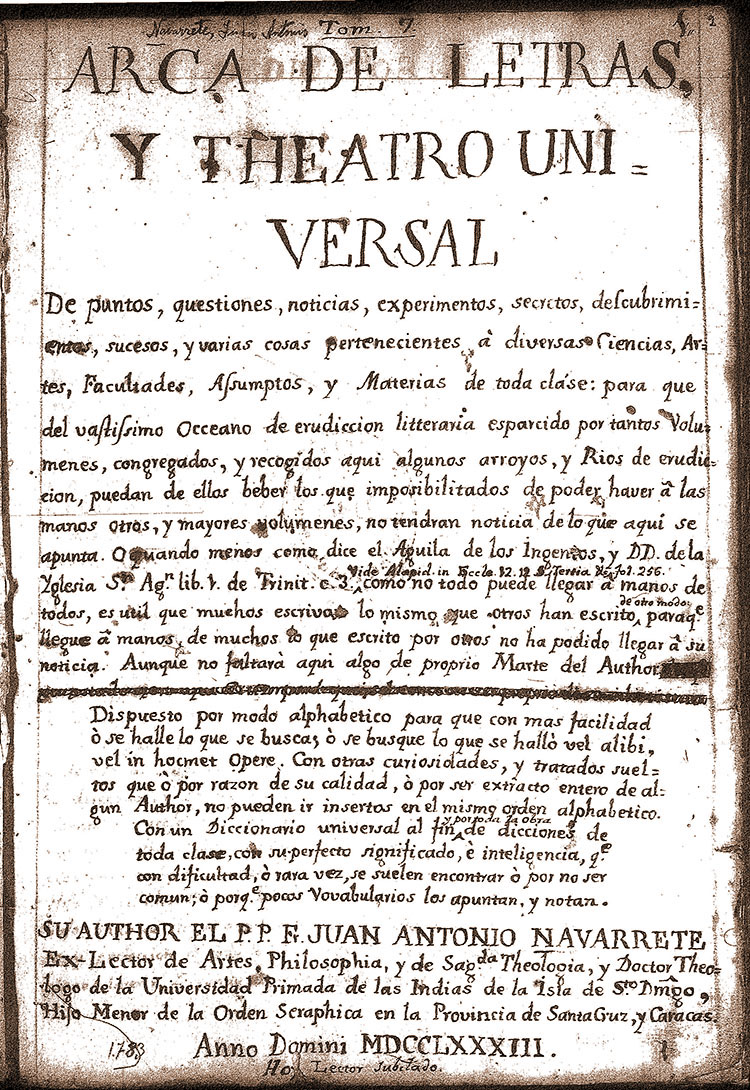 Navarrete, Juan Antonio Tom. 7
2
ARCA DE LETRAS,
Y THEATRO UNI=
VERSAL
De puntos, questiones, noticias, experimentos, secretos, deſcubrimi=
entos, sucesos, y varias cosas pertenecientes â diversas Ciencias, Ar=
tes, Facultades, Aſsumptos, y Materias de toda clase: para que
del vaſtiſsimo Occeano de erudiccion litteraria esparcido por tantos Volu=
menes, congregados, y recogidos aqui algunos arroyos, y Rios de erudic=
cion, puedan de ellos beber los que imposibilitados de poder haver â las
manos otros, y mayores volumenes, no tendran noticia de lo que aqui se
apunta. O quando menos como dice el Aguila de los Ingenios, y DD. de la
Vide Alapid. in Eccle. 12. 12
fol. 256.
Yglesia Sn. Agn. lib. 1. de Trinit. c. 3. como no todo puede llegar â manos de
todos, es util que muchos escrivan lo mismo que otros han escrito, paraqe
de otro modo
llegue â manos de muchos lo que escrito por otros no ha podido llegar â su
noticia. Aunque no faltarà aqui algo de proprio Marte del Author
Dispuesto por modo alphabetico para que con mas facilidad
ò se halle lo que se busca; ò se busque lo que se hallò vel alibi,
vel in hocmet Opere. Con otras curiosidades, y tratados suel=
tos que ò por razon de su calidad, ò por ser extracto entero de al=
gun Author, no pueden ir insertos en el mismo orden alphabetico.
y por toda la obra
Con un Diccionario universal al fin de dicciones de
toda clase, con su perfecto significado, è inteligencia, q.e
con dificultad, ò rara vez, se suelen encontrar ò por no ser
comun; ò porq.e pocos Vovabularios los apuntan, y notan.
SU AUTHOR EL P. P. F. JUAN ANTONIO NAVARRETE
Ex-Lector de Artes, Philosophia, y de Sagda Theologia, y Doctor Theo-
logo de la Universidad Primada de las Indias de la Isla de Sto Dmgo,
Hijo Menor de la Orden Seraphica en la Provincia de Santa Cruz, y Caracas.
1783 Anno Domini MDCCLXXXIII.
Hoy Lector Jubilado.